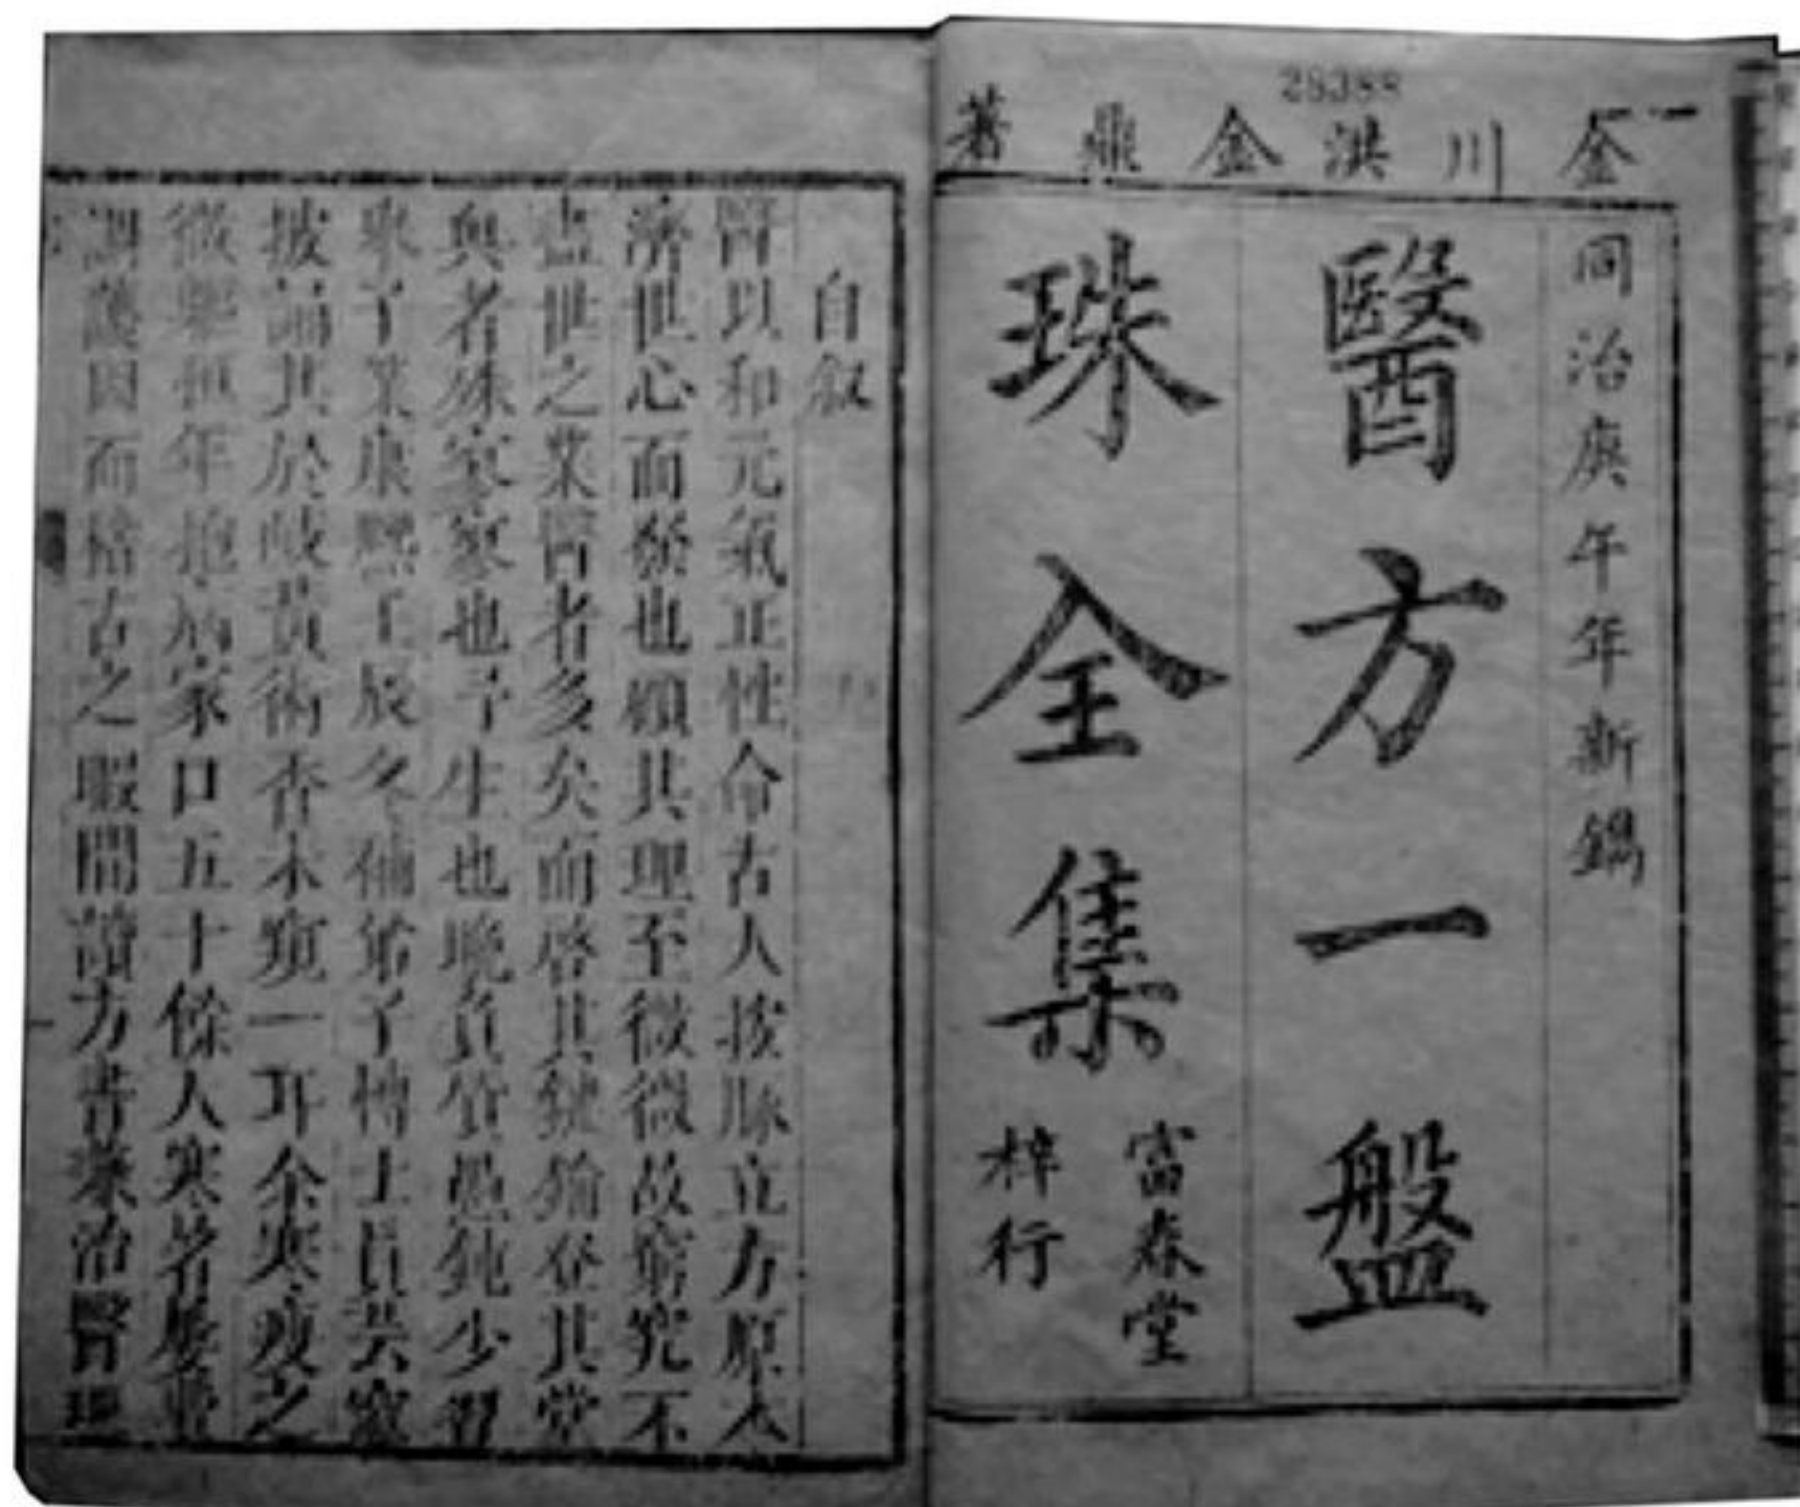 28388
金川洪金鼎著
同治庚午年新鐫
醫方一盤
珠全集
富春堂
梓行
自叙
醫以和元氣正性命古人按脉立方原本
濟世心而發也顧其理至微故窮究不
盡世之業醫者多矣而啓其登其堂
與者殊寥寥也予生也晚負質愚鈍少習
舉子業康熙壬辰冬補弟子博士員芸窓
披誦其於岐黃術杳未窺一耳余寒疫之
年抱病家口五十餘人寒暑
因而稽古之暇間讀方書兼治醫理